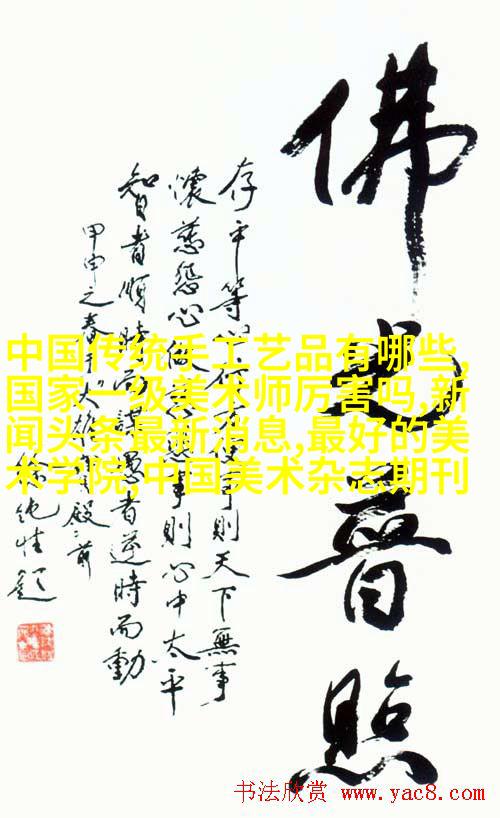 佛光普照
存平等心行方便事則天下無事
懷慈悲心做慈悲事則心中太平
智者順時而謀愚者逆時而動
甲申之春于大雄殿前
題
中国传统手工艺品有哪些,
国家一级美术师厉害吗,新
闻头条最新消息,最好的美
术学院,中国美术杂志期刊
书法欣赏 www.yac8.com